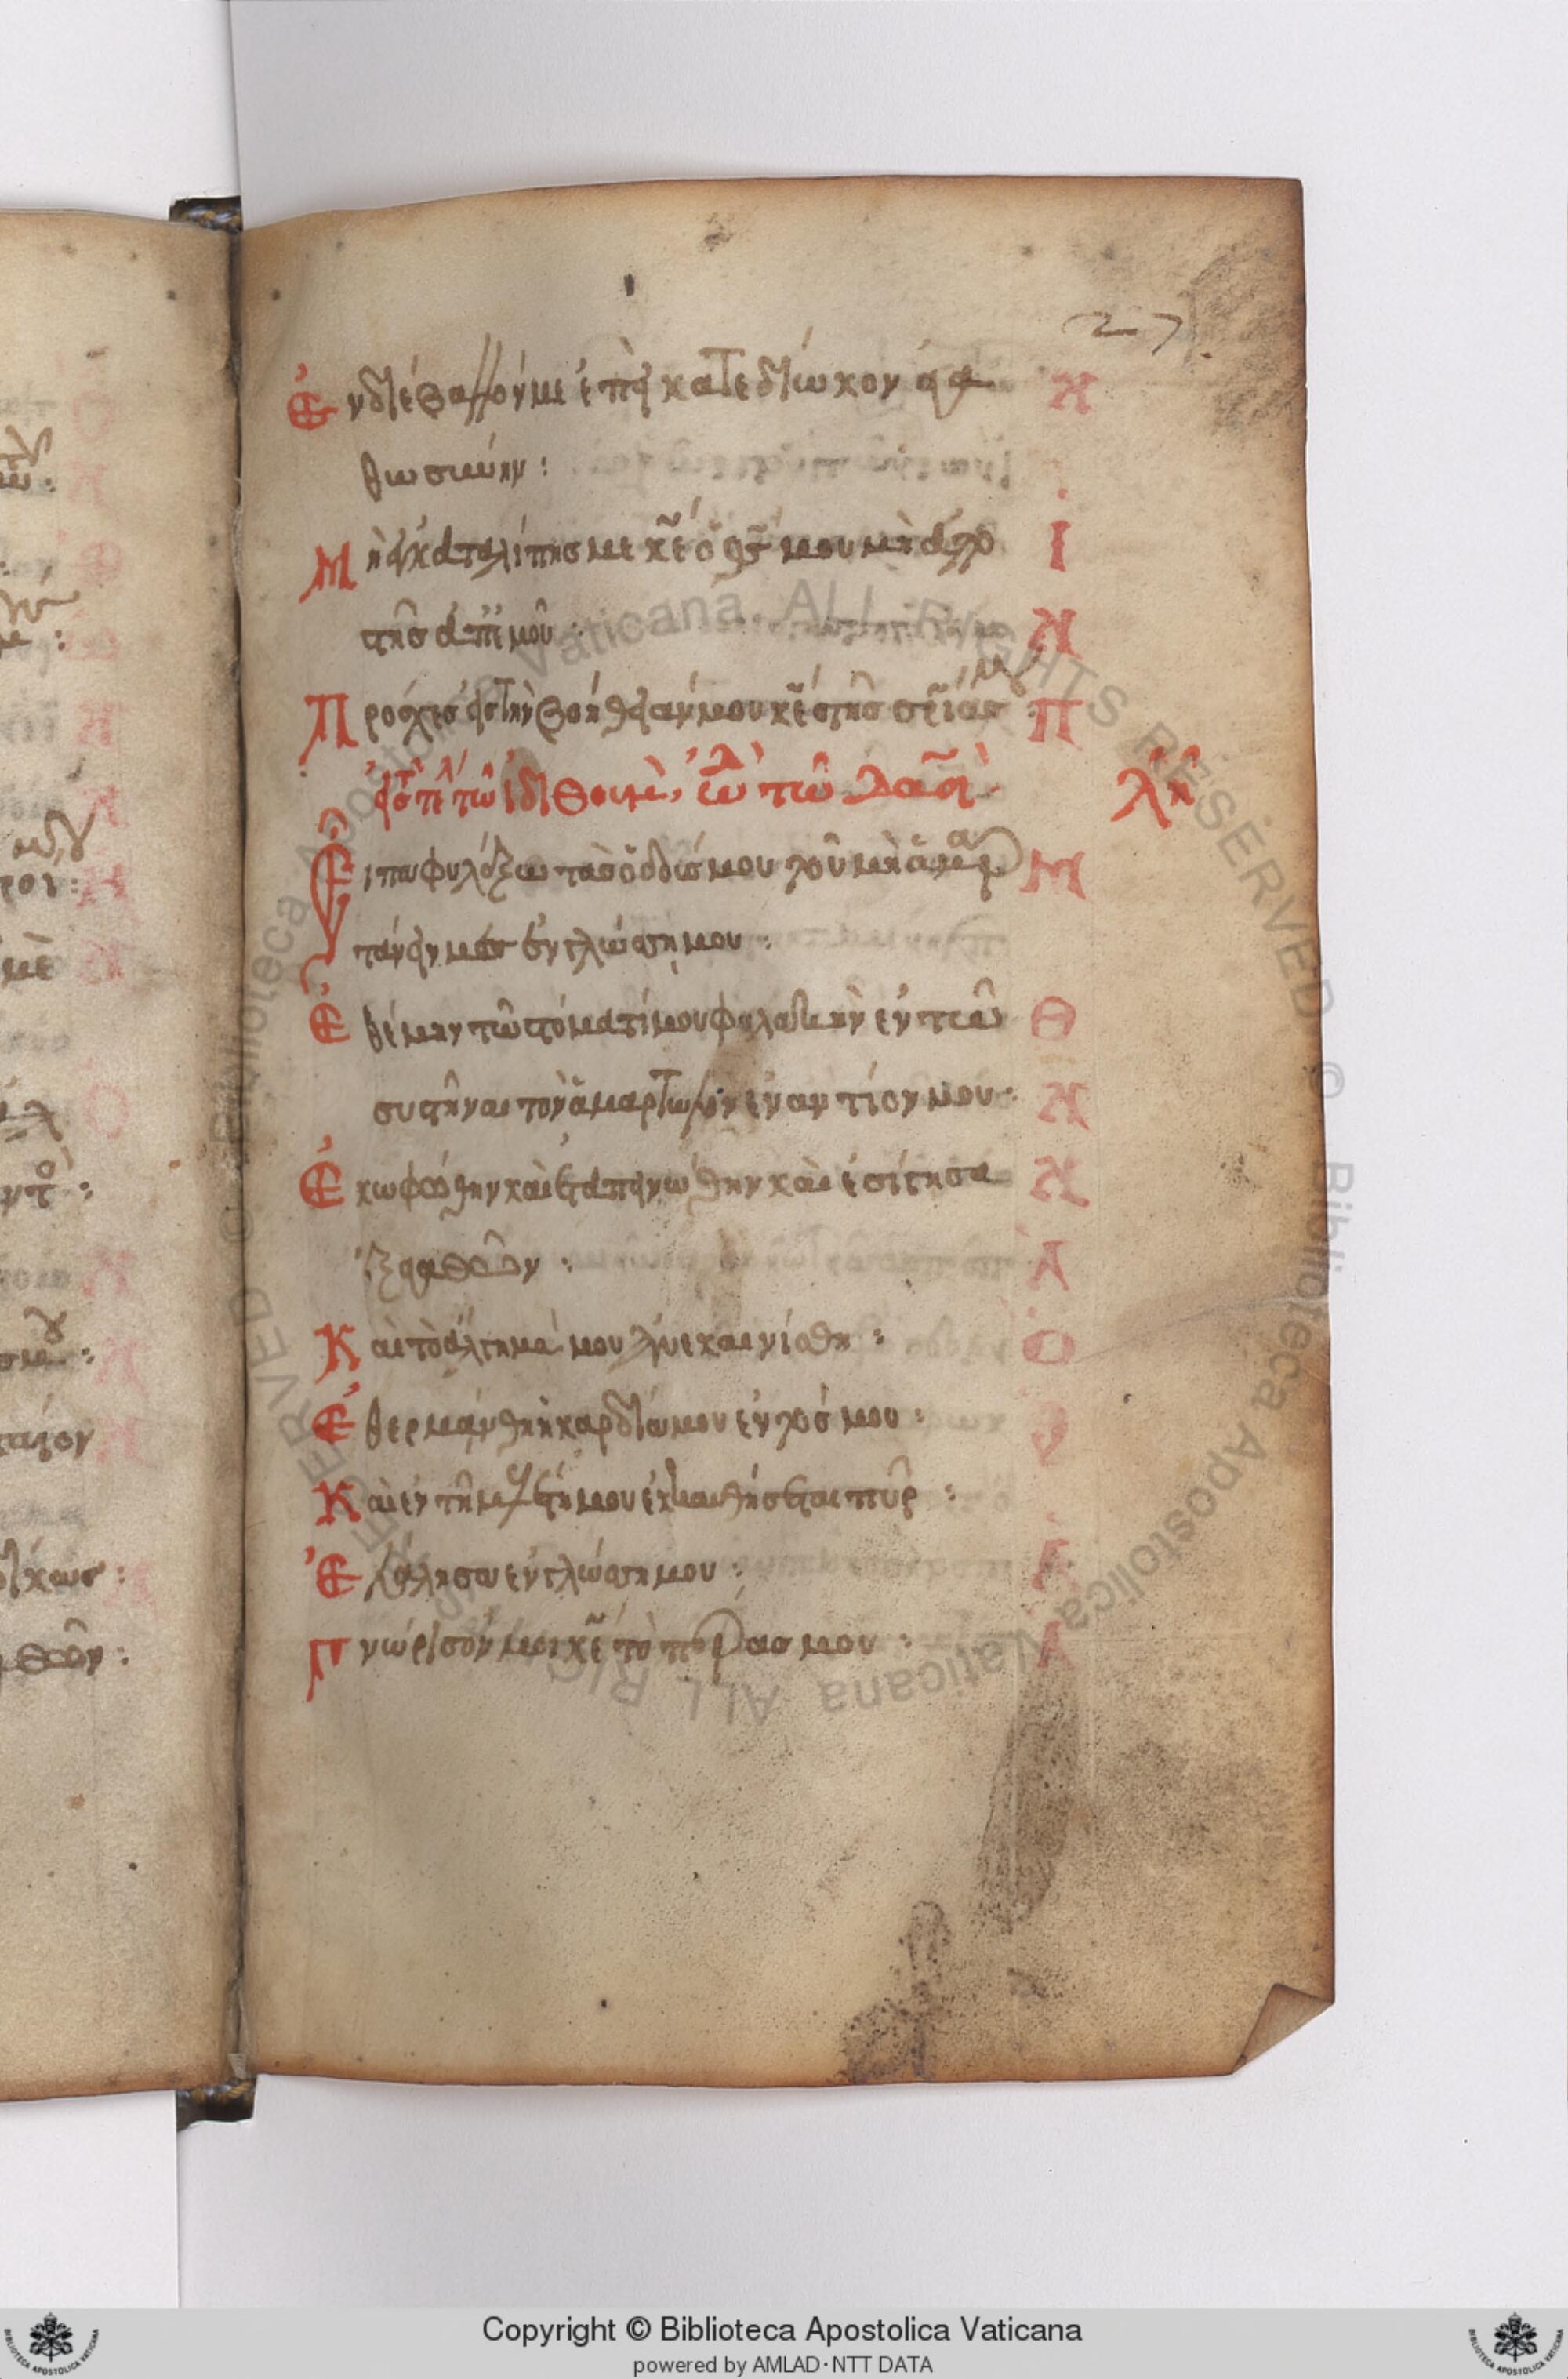 27
Ἐνδιέβαλλόν με ἐπεὶ κατεδίωκον ἀγα
θωσύνην :
Μὴ ἐγκαταλίπης με κ̅ε̅ ὁ θ̅ς̅ μου μὴ ἀπο
στῆς ἀπ' ἐμοῦ :
Πρόσχες εἰς τὴν βοήθειάν μου κ̅ε̅ τῆς σ̅ρ̅ί̅ας μου
εἰς τὸ τέλος τῶ ἰδιθουμ, ὠδὴ τῶ δα̅δ̅ λη
Εἶπα φυλάξω τὰς ὁδούς μου τοῦ μὴ ἁμαρ
τάνειν με ἐν γλώσση μου :
Ἐθέμην τῶ στόματί μου φυλακὴν ἐν τῶ
συστῆναι τὸν ἁμαρτωλὸν ἐναντίον μου :
Ἐκωφώθην καὶ ἐταπεινώθην καὶ ἐσίγησα
ἐξ ἀγαθῶν :
Καὶ τὸ ἄλγημά μου ἀνεκαινίσθη :
Ἐθερμάνθη ἡ καρδία μου ἐντός μου :
Καὶ ἐν τῆ μελέτη μου ἐκκαυθήσεται πῦρ :
Ἐλάλησα ἐν γλώσση μου :
Γνώρισόν μοι κ̅ε̅ τὸ πέρας μου :
Copyright © Biblioteca Apostolica Vaticana
powered by AMLAD·NTT DATA